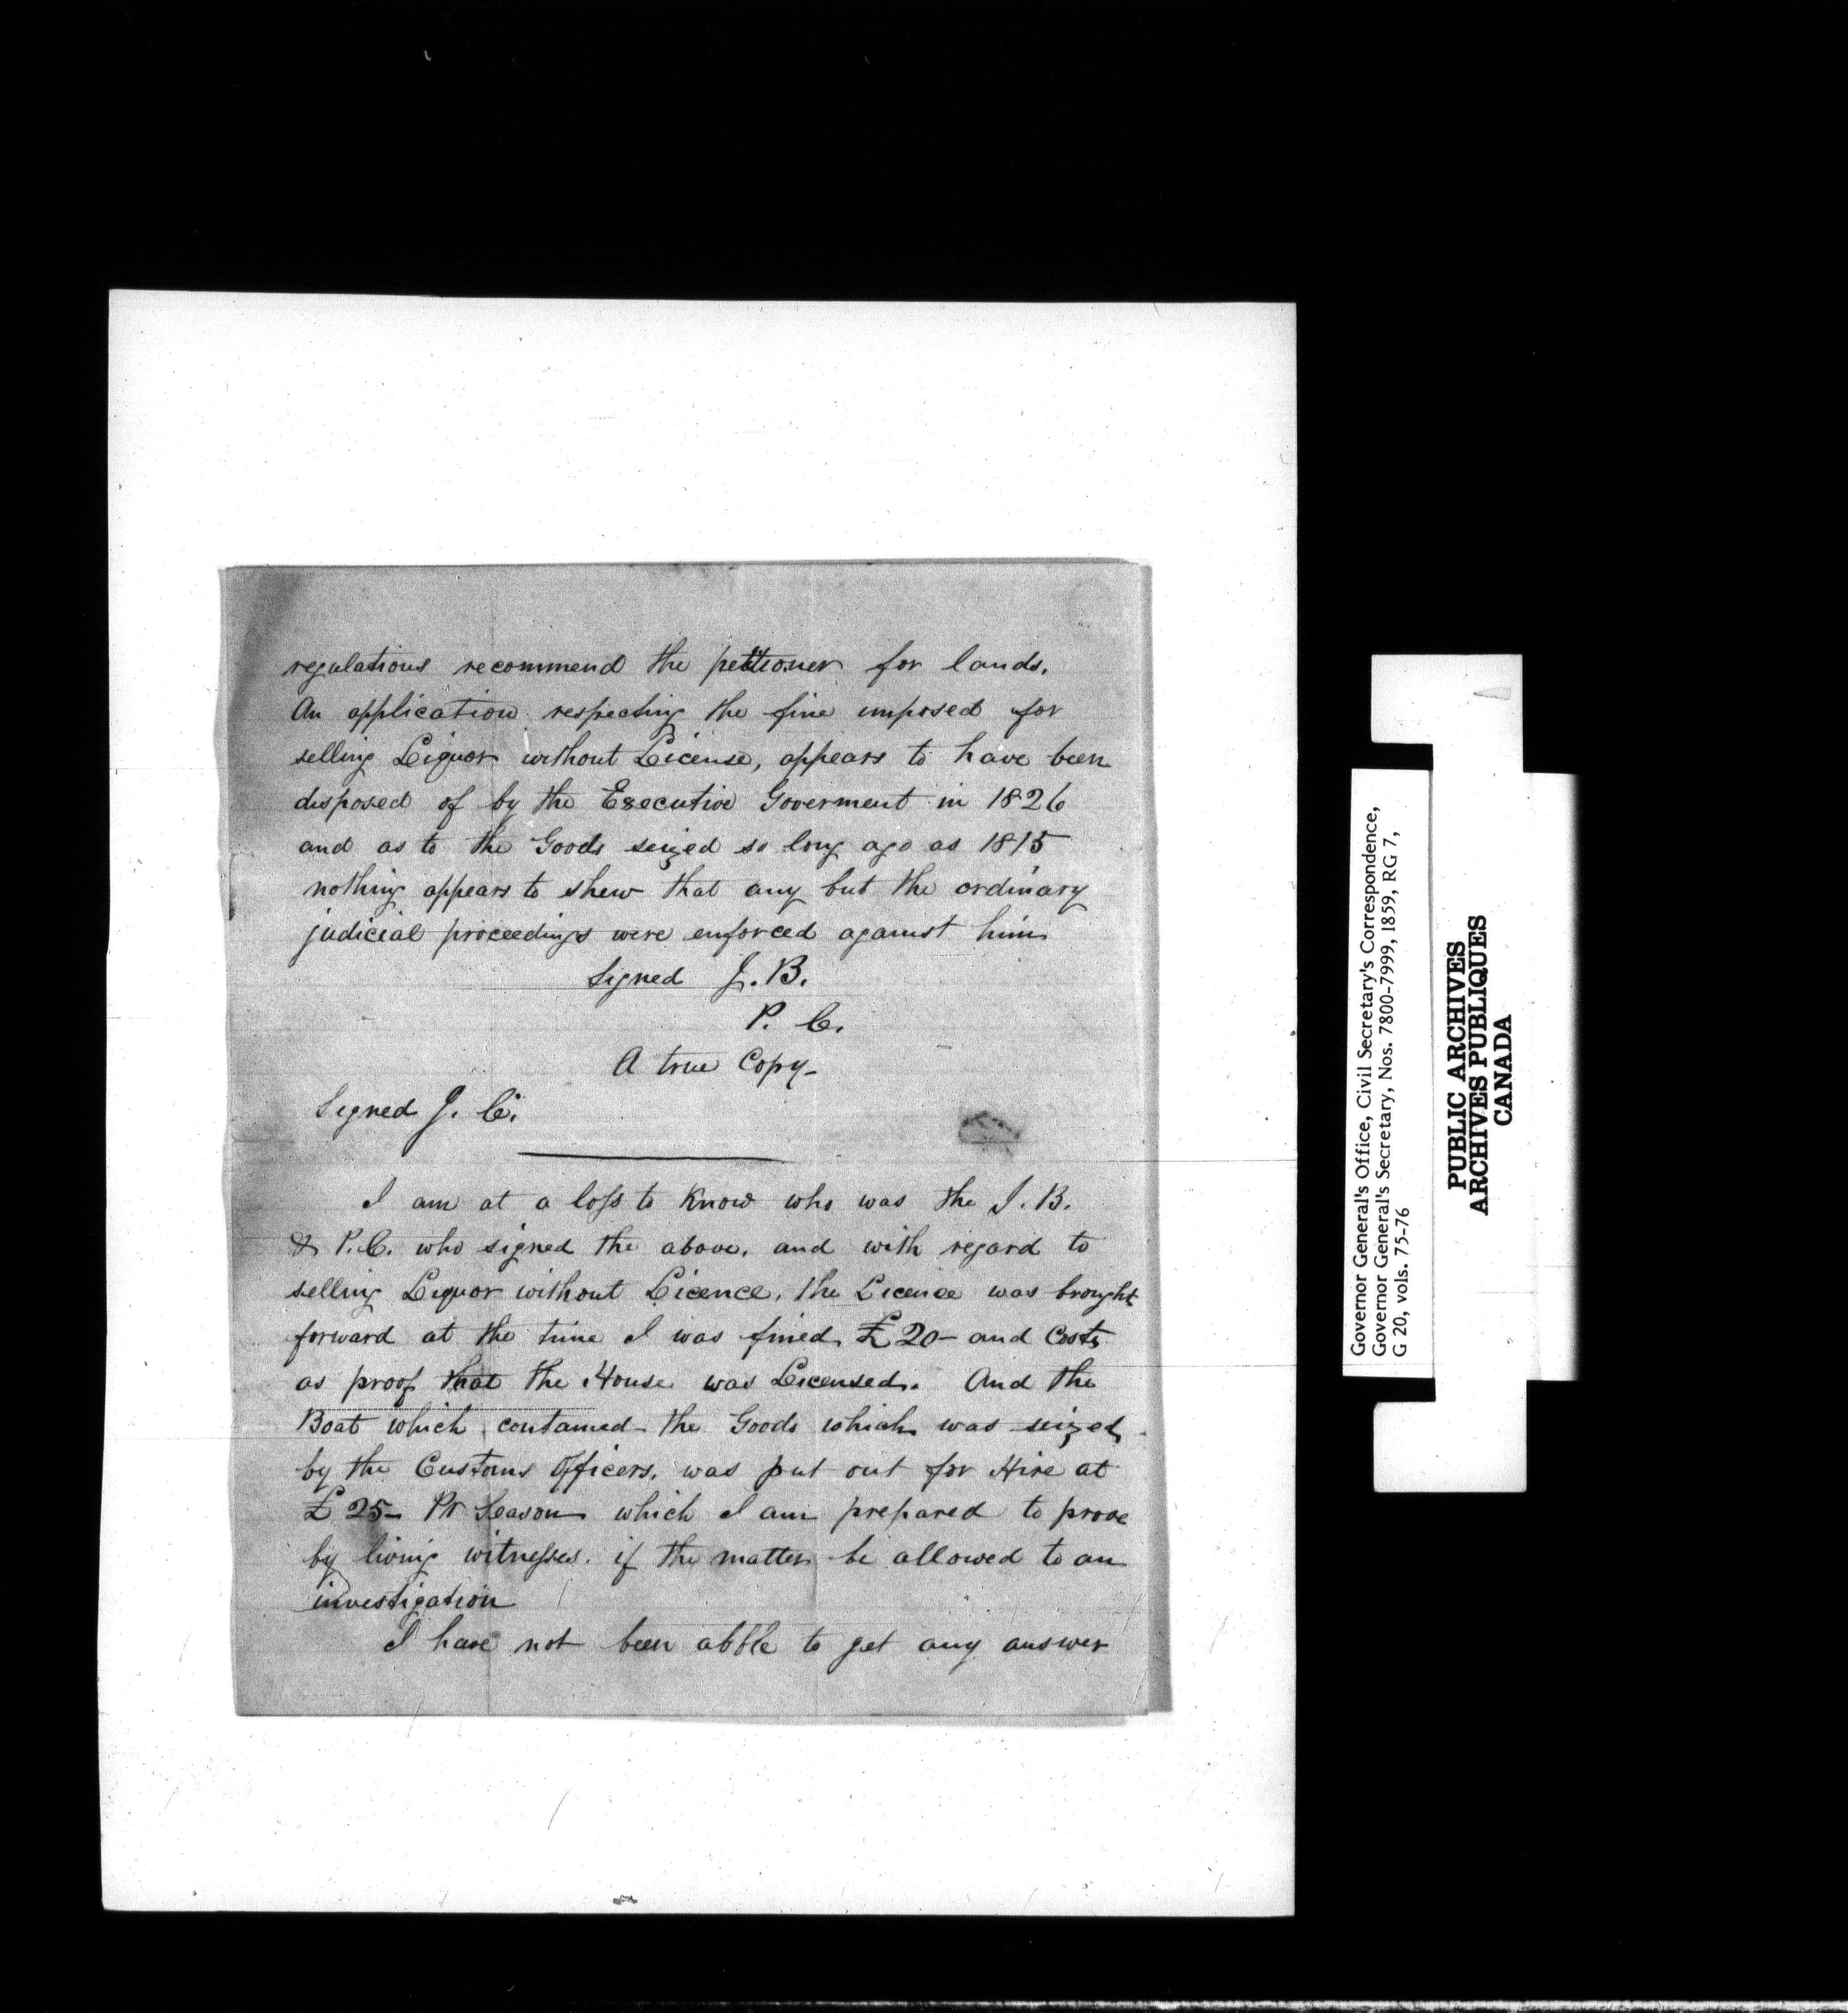 regulations recommend the petitioner for lands.
An application respecting the fine imposed for
selling Liquor without License, appears to have been
disposed of by the Executive Goverment in 1826
and as to the Goods seized so long ago as 1815
nothing appears to shew that any but the ordinary
judicial proceedings were enforced against him
Signed J. B.
P. C.
A true Copy
Signed J. C.
I am at a loss to Know who was the J. B.
& P. C. who signed the above. and with regard to
selling Liquor without Licence. the Licence was brought
forward at the time I was fined £20- and Costs
as proof that the House was Licensed. And the
Boat which contained the Goods which was seized
by the Customs Officers. was put out for Hire at
£25- Pr Season which I am prepared to prove
by living witnesses. if the matter be allowed to an
investigation
I have not been abble to get any answer
Governor General's Office, Civil Secretary's Correspondence,
Governor General's Secretary, Nos. 7800-7999, 1859, RG 7,
G 20, vols. 75-76
PUBLIC ARCHIVES
ARCHIVES PUBLIQUES
CANADA